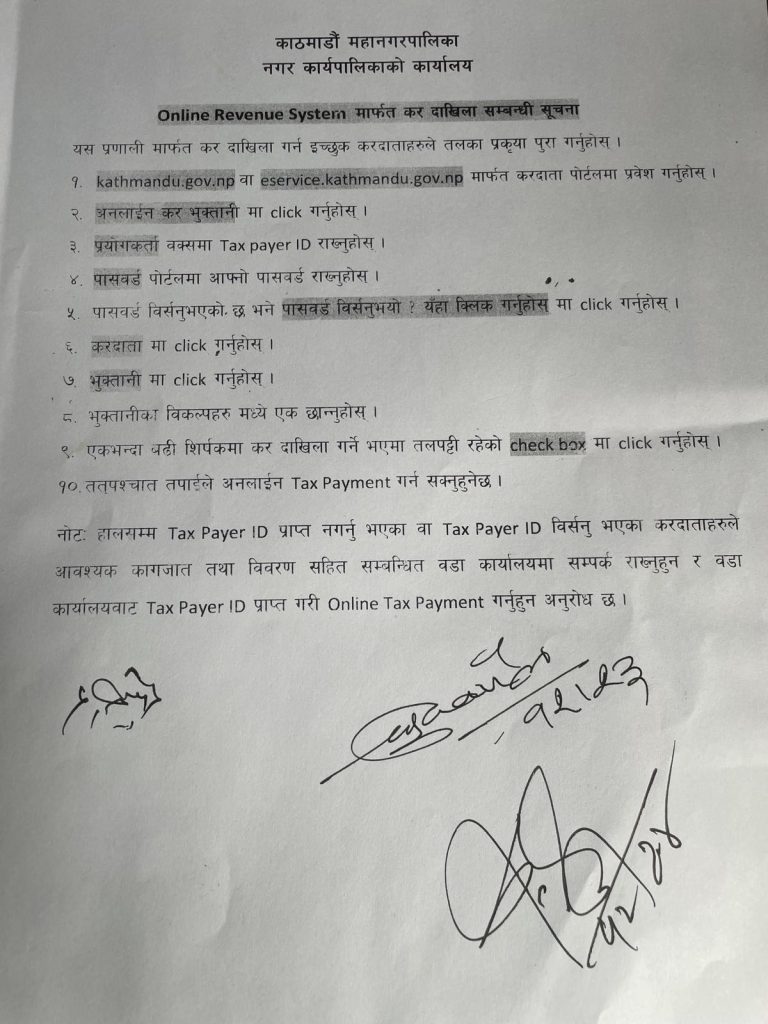 काठमाडौं महानगरपालिका
नगर कार्यपालिकाको कार्यालय
Online Revenue System मार्फत कर दाखिला सम्बन्धी सूचना
यस प्रणाली मार्फत कर दाखिला गर्न इच्छुक करदाताहरुले तलका प्रकृया पुरा गर्नुहोस् ।
१. kathmandu.gov.np वा eservice.kathmandu.gov.np मार्फत करदाता पोर्टलमा प्रवेश गर्नुहोस् ।
२. अनलाईन कर भुक्तानी मा click गर्नुहोस् ।
३. प्रयोगकर्ता वक्समा Tax payer ID राख्नुहोस् ।
४. पासवर्ड पोर्टलमा आफ्नो पासवर्ड राख्नुहोस् ।
५. पासवर्ड विर्सनुभएको छ भने पासवर्ड विर्सनुभयो ? यँहा क्लिक गर्नुहोस् मा click गर्नुहोस् ।
६. करदाता मा click गर्नुहोस् ।
७. भुक्तानी मा click गर्नुहोस् ।
८. भुक्तानीका विकल्पहरु मध्ये एक छान्नुहोस् ।
९. एकभन्दा बढी शिर्पकमा कर दाखिला गर्ने भएमा तलपट्टी रहेको check box मा click गर्नुहोस् ।
१०. तत्पश्चात तपाईले अनलाईन Tax Payment गर्न सक्नुहुनेछ ।
नोटः हालसम्म Tax Payer ID प्राप्त नगर्नु भएका वा Tax Payer ID विर्सनु भएका करदाताहरुले
आवश्यक कागजात तथा विवरण सहित सम्बन्धित वडा कार्यालयमा सम्पर्क राख्नुहुन र वडा
कार्यालयवाट Tax Payer ID प्राप्त गरी Online Tax Payment गर्नुहुन अनुरोध छ ।
१२।२३
१२।२४